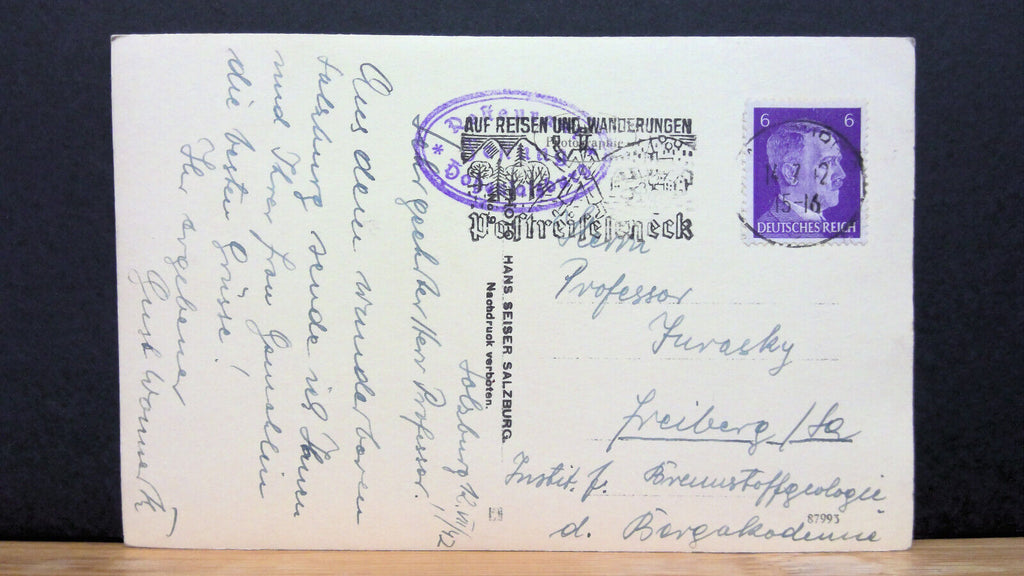 Salzburg 12.VII/42
Sehr geehrter Herr Professor,
Aus dem wunderbaren
Salzburg sende ich Ihnen
und Ihrer Frau Gemahlin
die besten Grüsse!
Ihr ergebener
Gust
AUF REISEN UND WANDERUNGEN
Postreisescheck
6 6
15-16
DEUTSCHES REICH
HANS SEISER SALZBURG
Nachdruck verboten.
Herrn
Professor
Jurasky
Freiberg/Sa
Instit. f. Brennstoffgeologie
d. Bergakademie
87993